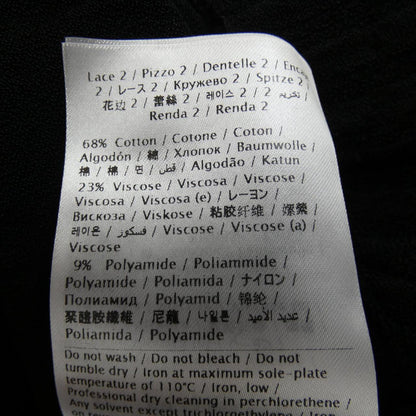 Lace 2 / Pizzo 2 / Dentelle 2 / Encaje
2 / レース 2 / Кружево 2 / Spitze 2 /
花边 2 / 蕾絲 2 / 레이스 2 / 2 تخريم /
Renda 2 / Renda 2
68% Cotton / Cotone / Coton /
Algodón / 綿 / Хлопок / Baumwolle /
棉 / 棉 / 면 / قطن / Algodão / Katun
23% Viscose / Viscosa / Viscose /
Viscosa / Viscosa (e) / レーヨン /
Вискоза / Viskose / 粘胶纤维 / 嫘縈 /
레이온 / فسكوز / Viscose (a) /
Viscose
9% Polyamide / Poliammide /
Polyamide / Poliamida / ナイロン /
Полиамид / Polyamid / 锦纶 /
聚醯胺纖維 / 尼龍 / 나일론 / عديد الأميد /
Poliamida / Polyamide
Do not wash / Do not bleach / Do not
tumble dry / Iron at maximum sole-plate
temperature of 110°C / Iron, low /
Professional dry cleaning in perchlorethene /
Any solvent except trichlorethylene /